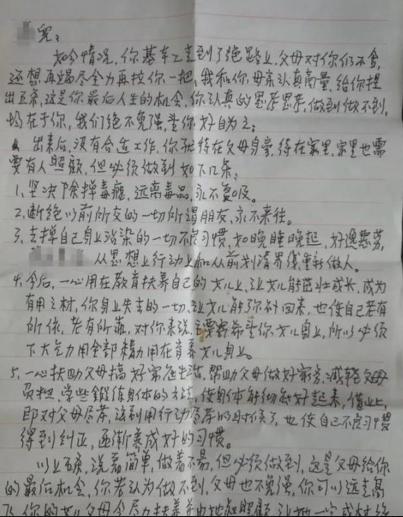 儿:
如今情况,你基本上走到了绝路上,父母对你仍不舍,
还想再竭尽全力再拉你一把,我和你母亲认真商量,给你提
出五条,这是你最后人生的机会,你认真的思考思考,做到做不到,
均在于你,我们绝不免强,望你好自为之:
出来后,没有合适工作,你就待在父母身旁,待在家里,家里也需
要有人照顾,但必须做到如下几条:
1、坚决除掉毒瘾,远离毒品,永不复吸。
2、断绝以前所交的一切所谓朋友,永不来往。
3、去掉自己身上沾染的一切不良习惯,如晚睡晚起,好逸恶劳,
从思想上行动上和从前划清界线,重新做人。
4、今后,一心用在教育扶养自己的女儿上,让女儿能茁壮成长,成为
有用之材,你身上失去的一切,让女儿能弥补回来,也使自己老有
所依,老有所靠,对你来说,主要希望你女儿身上,所以必须
下大气力用全部精力用在育养女儿身上。
5、一心扶助父母搞好家庭生活,帮助父母做好家务,减轻父母
负担,学些锻练身体的方法,使身体能彻底好起来,借此上,
即对父母尽孝,该到用行动尽孝的时候了,也使自己不良习惯
得到纠正,逐渐养成好的习惯。
以上五条,说着简单,做着不易,但必须做到,这是父母给你
的最后机会,你若认为做不到,父母也不免强,你可以远走高
飞,你的女儿父母会尽力扶养